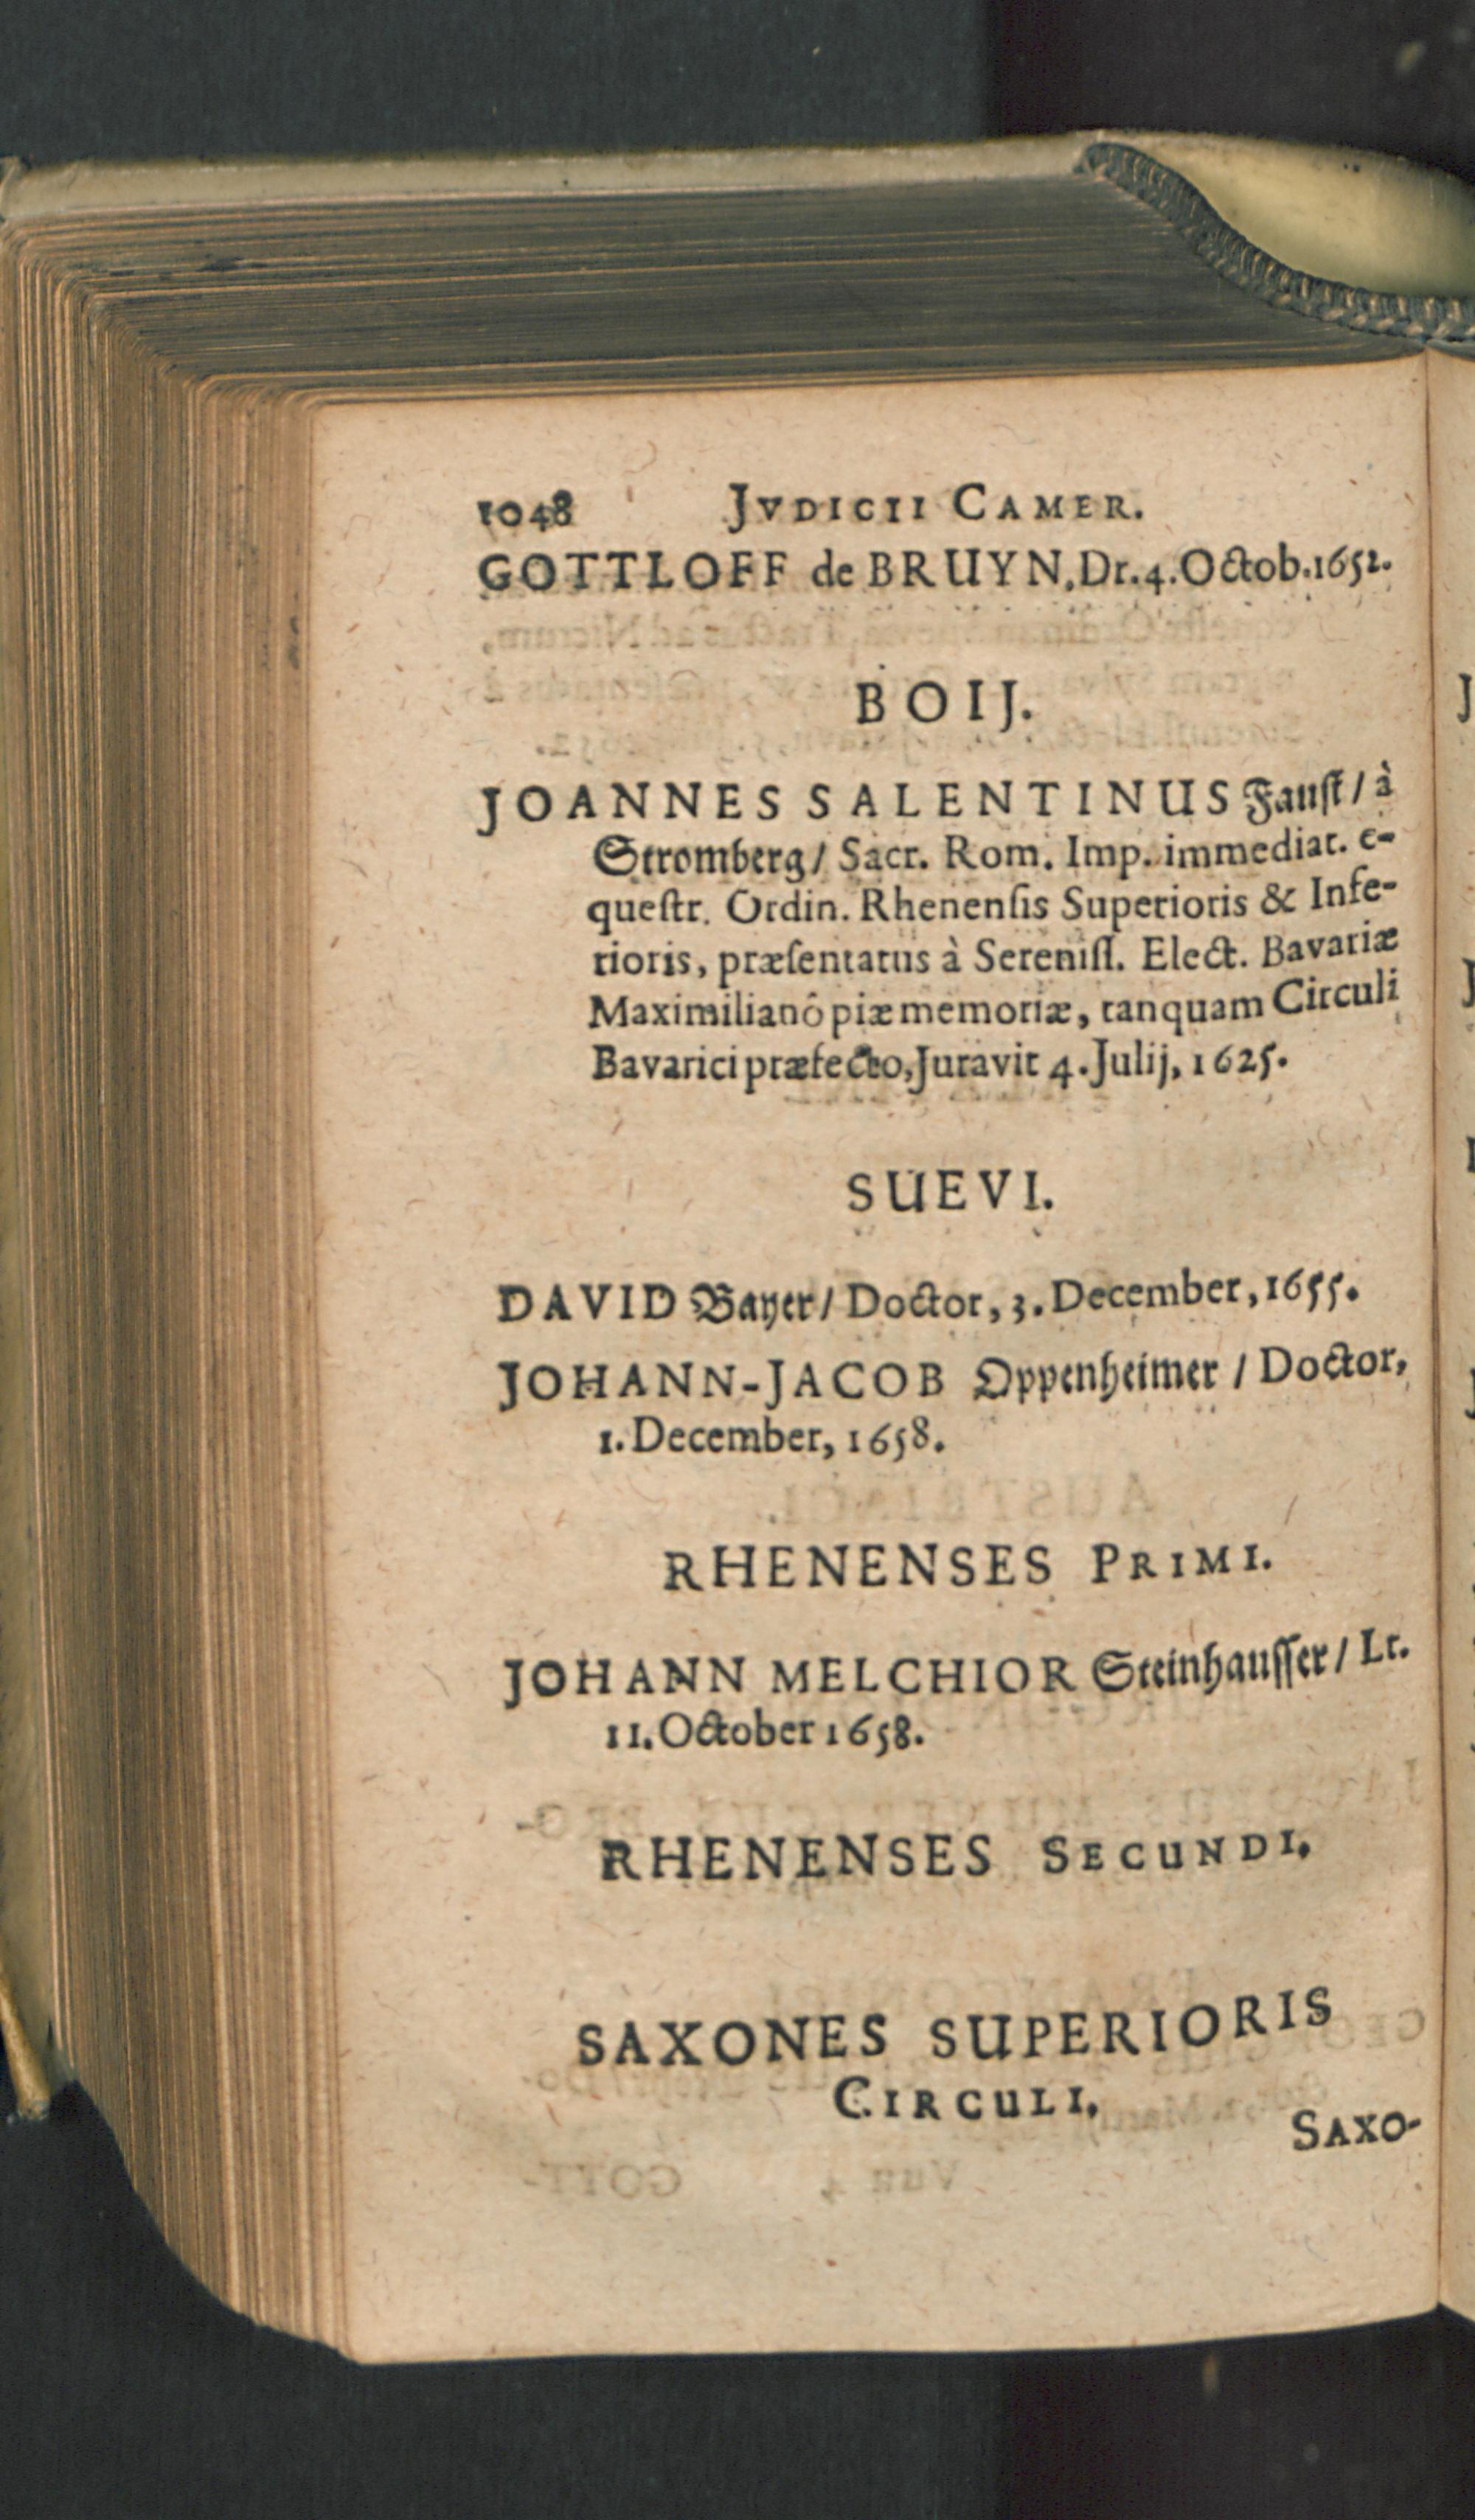 1048 JVDICII CAMER.
GOTTLOFF de BRUYN, Dr. 4. Octob. 1652.
BOIJ.
JOANNES SALENTINUS Fauſt / à
Stromberg / Sacr. Rom. Imp. immediat. e-
queſtr. Ordin. Rhenenſis Superioris & Infe-
rioris, præſentatus à Sereniſſ. Elect. Bavariæ
Maximilianô piæ memoriæ, tanquam Circuli
Bavarici præfecto, Juravit 4. Julij, 1625.
SUEVI.
DAVID Bayer / Doctor, 3. December, 1655.
JOHANN-JACOB Oppenheimer / Doctor,
1. December, 1658.
RHENENSES PRIMI.
JOHANN MELCHIOR Steinhauſſer / Lt.
11. October 1658.
RHENENSES SECUNDI.
SAXONES SUPERIORIS
CIRCULI.
SAXO-